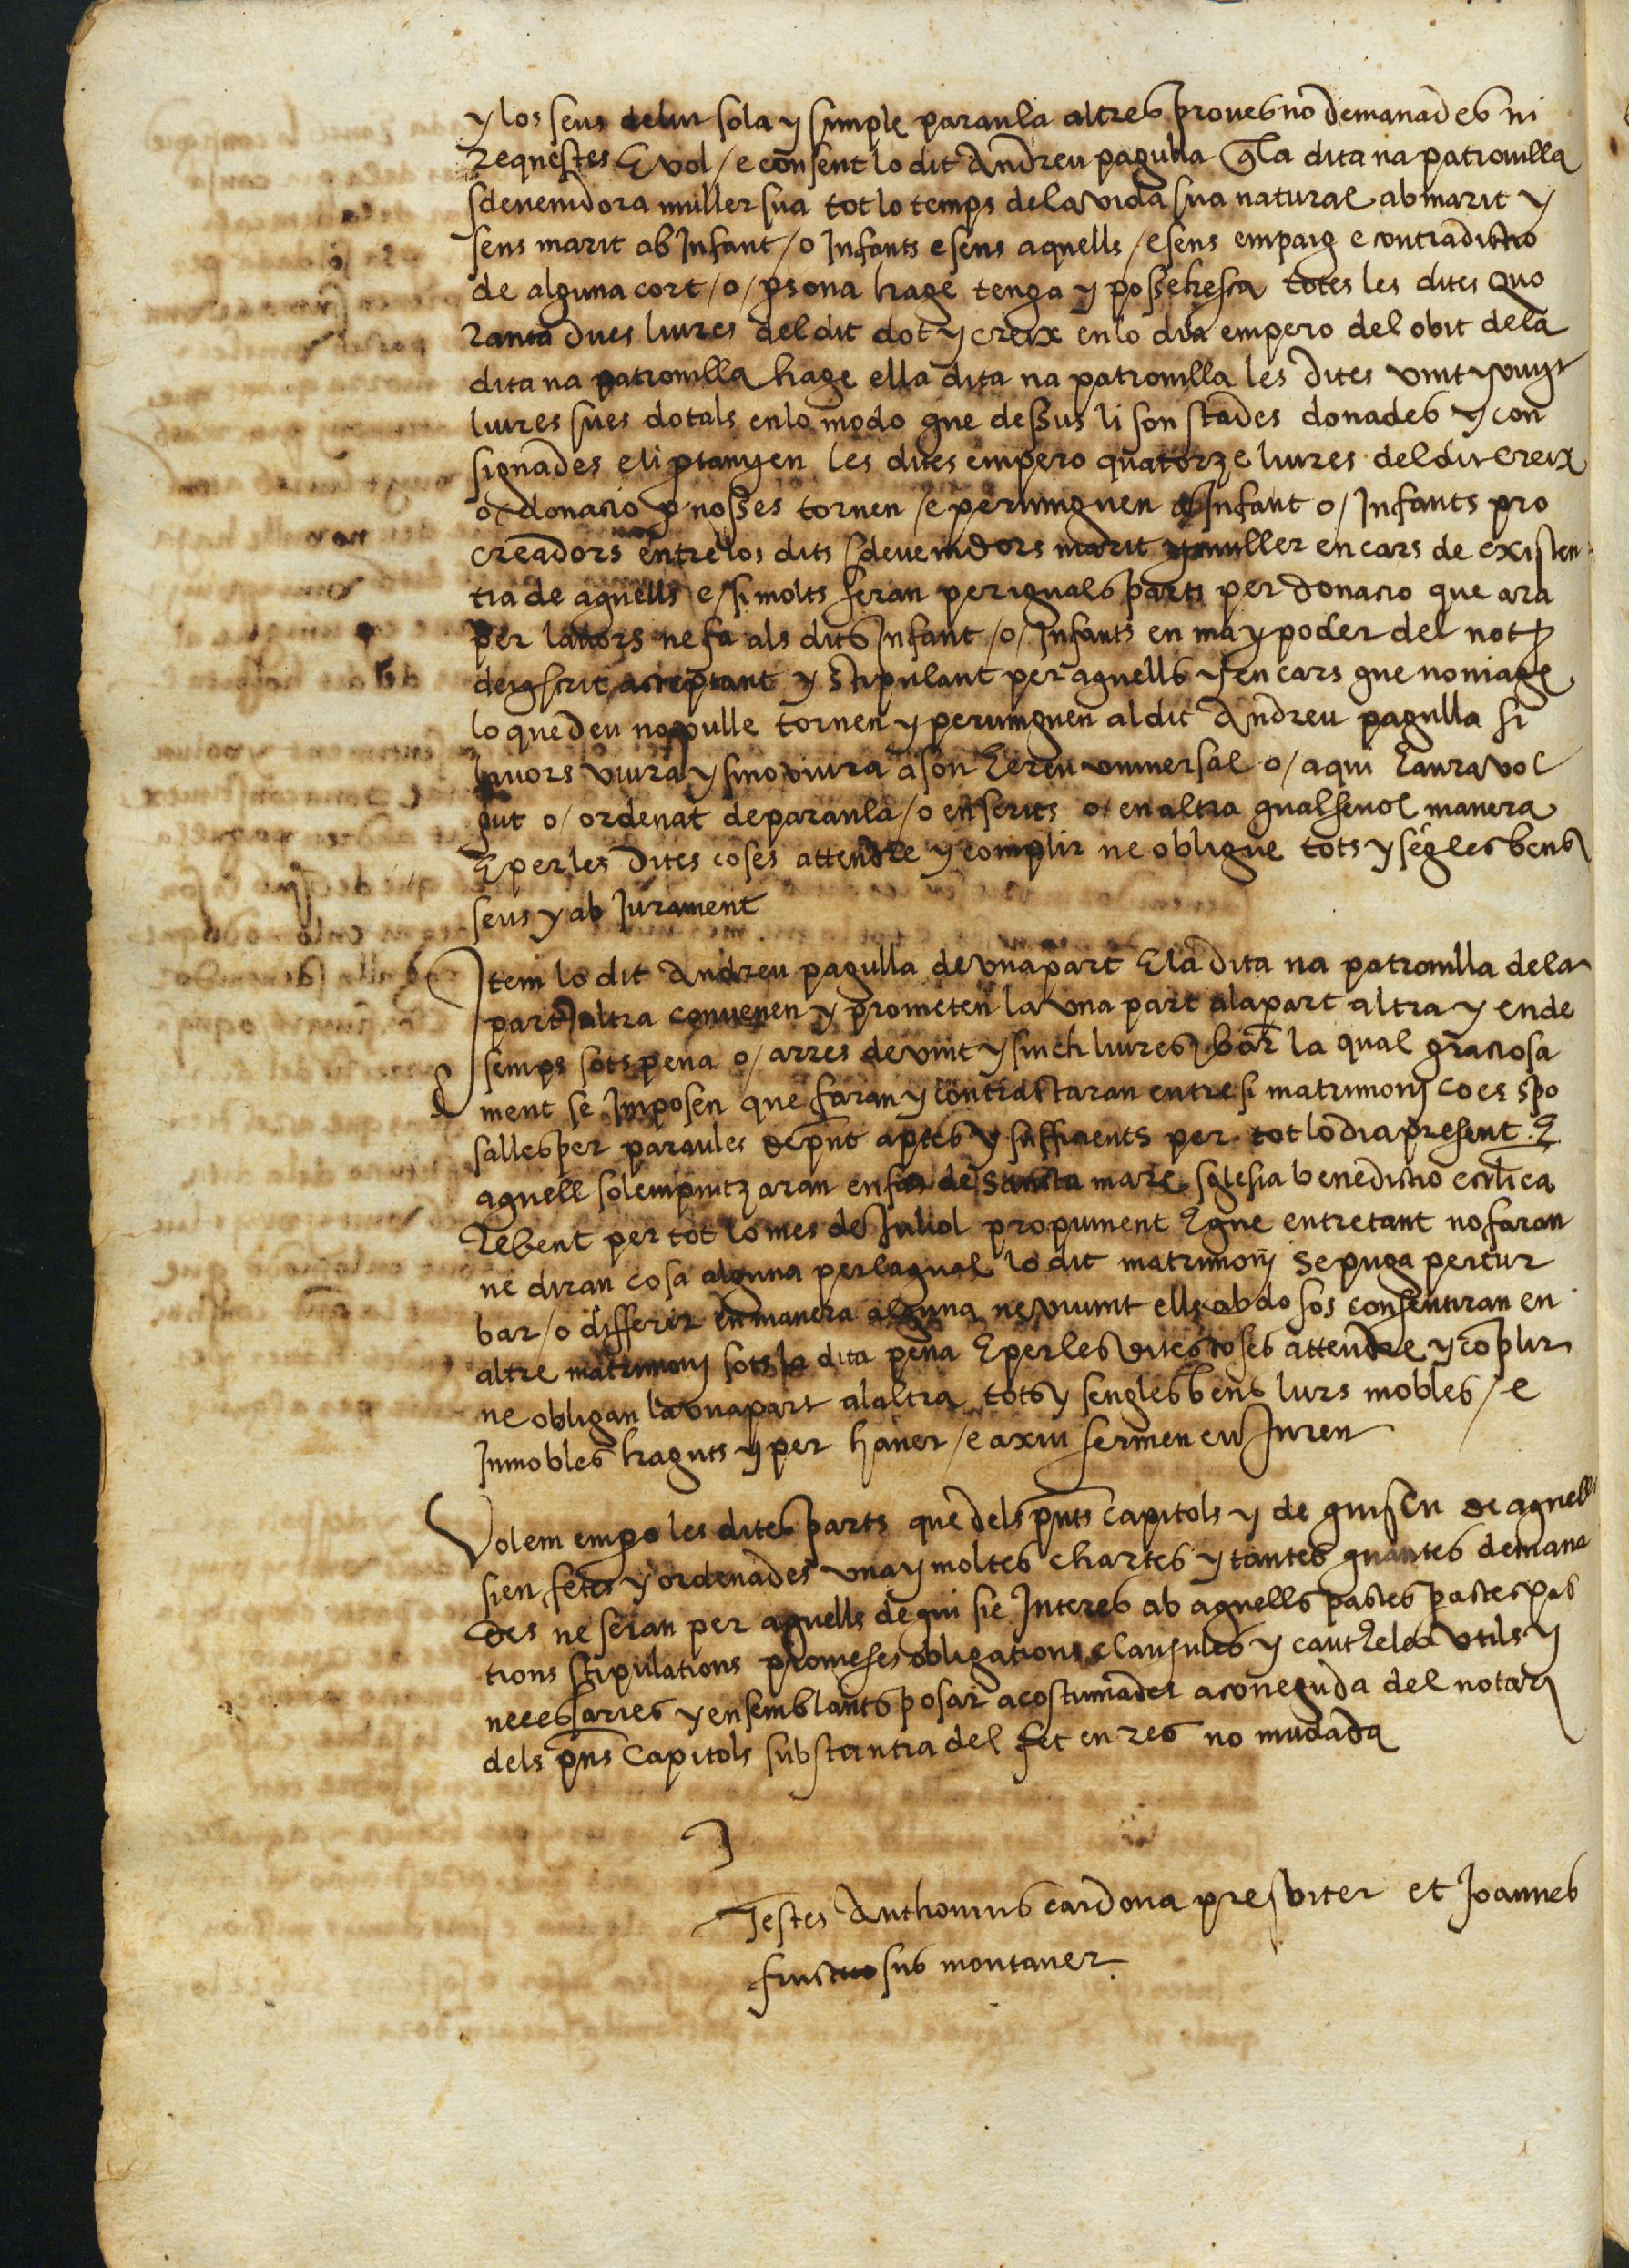 y los seus de lur sola y simple paraula altres proves no demanades ni
requestes E vol / e consent lo dit Andreu pagulla q̃ la dita na patronilla
sdevenidora muller sua tot lo temps dela vida sua natural ab marit y
sens marit ab Infant / o Infants e sens aquells / e sens empaig e contradictio
de alguna cort / o / p̲sona hage tenga y possehesca totes les dites quo
ranta dues liures del dit dot y creix en lo dia empero del obit dela
dita na patronilla hage ella dita na patronilla les dites vint y vuyt
liures sues dotals en lo modo que dessus li son stades donades y con
signades e li p̲tanyen les dites empero quatorze liures del dit creix
o donacio p̲ nosses tornen / e pervinguen a Infant o / Infants pro
creadors entre los dits sdevenidors marit y muller en cars de existen
tia de aquells e / si molts seran per iguals parts per donacio que ara
per lavors ne fa als dits Infant / o / Infants en ma y poder del not
deiuscrit acceptant y stipulant per aquells y en cars que no niage
lo que deu no vulle tornen y pervinguen al dit Andreu pagulla si
lavors viura y si no viura a son Hereu universal o / a qui Haura vol
gut o / ordenat de paraula / o en scrits o / en altra qualsevol manera
E per les dites coses attendre y complir ne obligue tots y sẽgles bens
seus y ab Jurament
Item lo dit Andreu pagulla de una part E la dita na patronilla dela
part altra convenen y prometen la una part ala part altra y ende
semps sots pena o / arres de vint y sinch liures bar̃ la qual graciosa
ment se Imposen que faran y contractaran entre si matrimonj ço es spo
salles per paraules de p̃nt aptes y sufficients per tot lo dia present . E
aquell solempnitzaran en fas de sancta mare sglesia benedictio ecclica
rebent per tot lo mes de Juliol propvinent E que entretant no faran
ne diran cosa alguna per la qual lo dit matrimonj se puga pertur
bar / o differir en manera alguna ne vivint ells abdosos consentiran en
altre matrimonj sots la dita pena E per les dites coses attendre y cõplir
ne obligan la una part al altra tots y sengles bens lurs mobles / e
Inmobles haguts y per haver / e axiu fermen eu Juren
Volem emp̲o les dites parts que dels p̃nts capitols y de quiscu de aquells
sien fetes y ordenades una y moltes chartes y tantes quantes demana
des ne seran per aquells de qui sie Interes ab aquells pactes pactes pac
tions stipulations promeses obligations clausules y cautheles utils y
necessaries y en semblants posar acostumades a coneguda del notarj
dels p̃ns Capitols substantia del fet en res no mudada
Testes Anthonius cardona presbiter et Joannes
fructuosus montaner